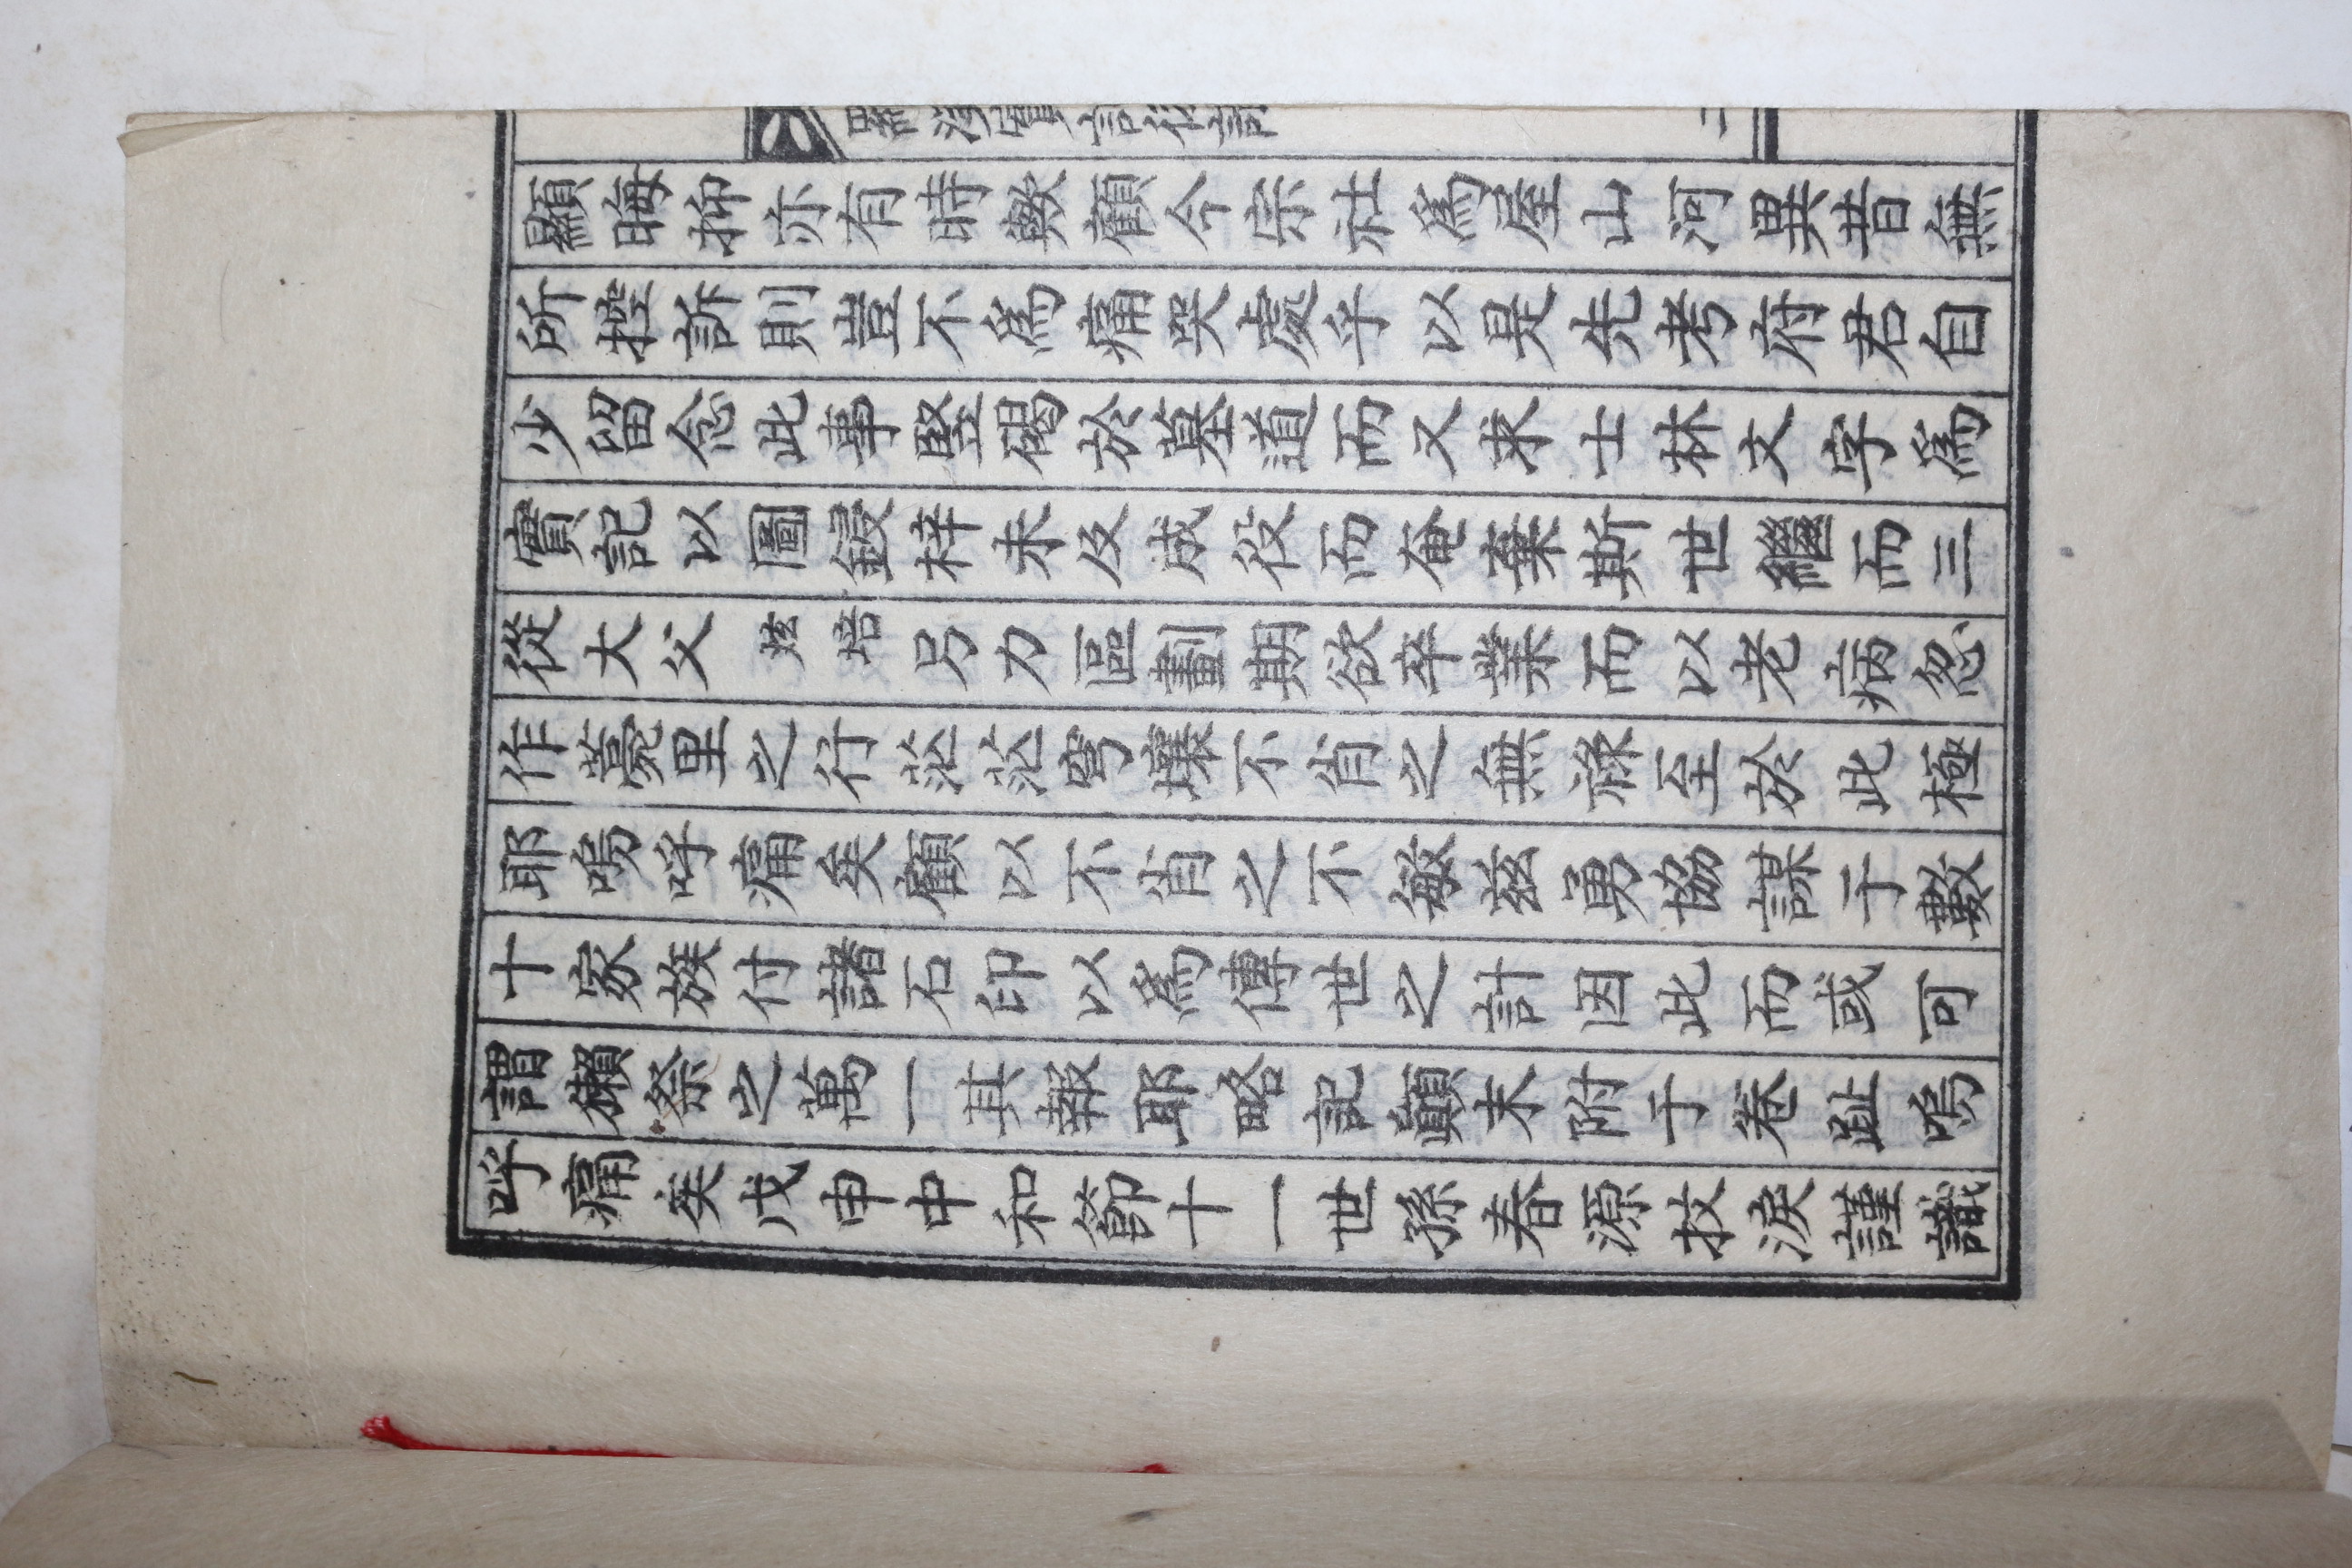 實記後
二
顯晦抑亦有時歟顧今宗社爲屋山河異昔無
所控訴則豈不爲痛哭處乎以是先考府君自
少留念此事竪碣於墓道而又求士林文字爲
實記以圖鋟梓未及成役而奄棄斯世繼而三
從大父炫培另力區劃期欲卒業而以老病忽
作薧里之行茫茫穹壤不肖之無祿至於此極
耶嗚呼痛矣顧以不肖之不敏玆勇協謀于數
十家族付諸石印以爲傳世之計因此而或可
謂獺祭之萬一其報耶略記顚末附于卷趾嗚
呼痛矣戊申中和節十一世孫春源抆淚謹識